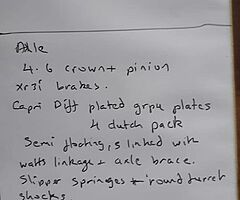 Axle
4.6 crown + pinion
xr3i brakes.
Capri Diff plated grpu plates
4 clutch pack
Semi floating, 5 linked with
watts linkage + axle brace.
Slipper springes + round turret
shocks